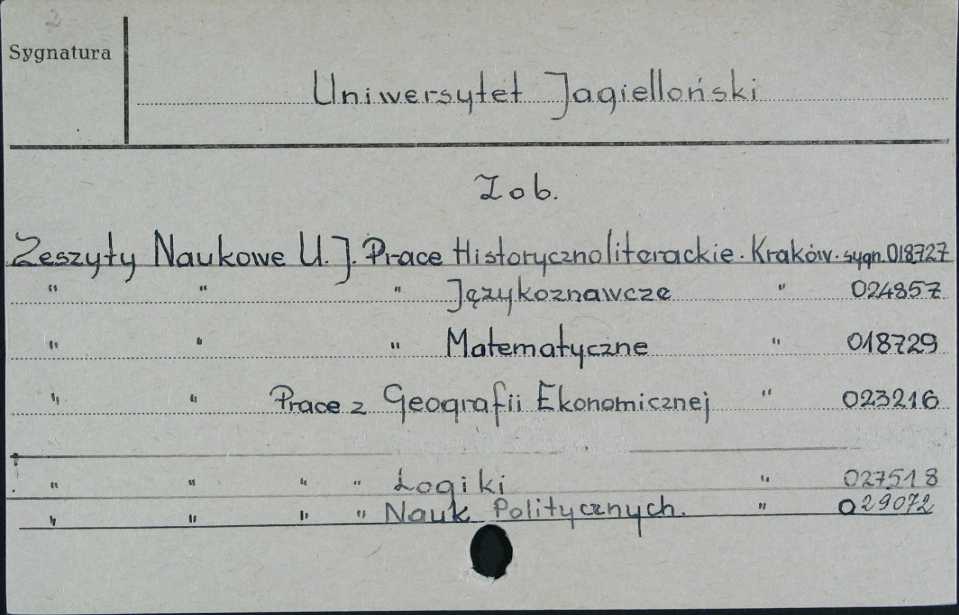 2
Sygnatura
Uniwersytet Jagielloński
Zob.
Zeszyty Naukowe U. J. Prace Historycznoliterackie. Kraków. sygn. 018727
" " " Językoznawcze " 024857
" " " Matematyczne " 018729
" " Prace z Geografii Ekonomicznej " 023216
" " " " Logiki " 027518
" " " " Nauk Politycznych. " 029072